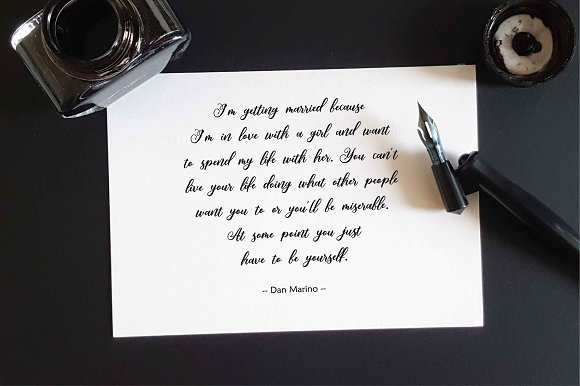 I'm getting married because
I'm in love with a girl and want
to spend my life with her. You can't
live your life doing what other people
want you to or you'll be miserable.
At some point you just
have to be yourself.
-- Dan Marino --